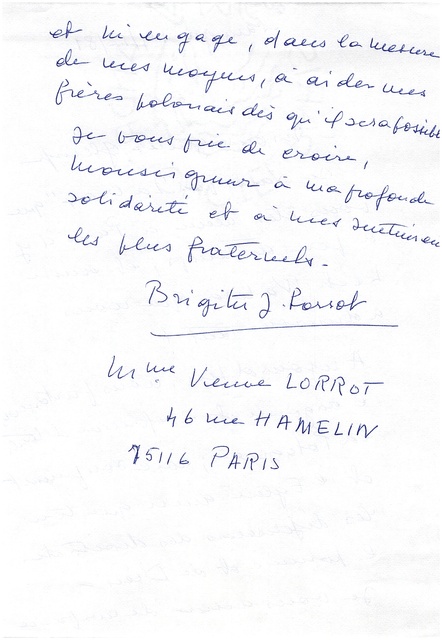 et m'engage, dans la mesure
de mes moyens, à aider mes
frères polonais dès qu'il sera possible
Je vous prie de croire,
Monseigneur à ma profonde
solidarité et à mes sentiments
les plus fraternels.
Brigitte J. Lorrot
Mme Veuve LORROT
46 rue HAMELIN
75116 PARIS